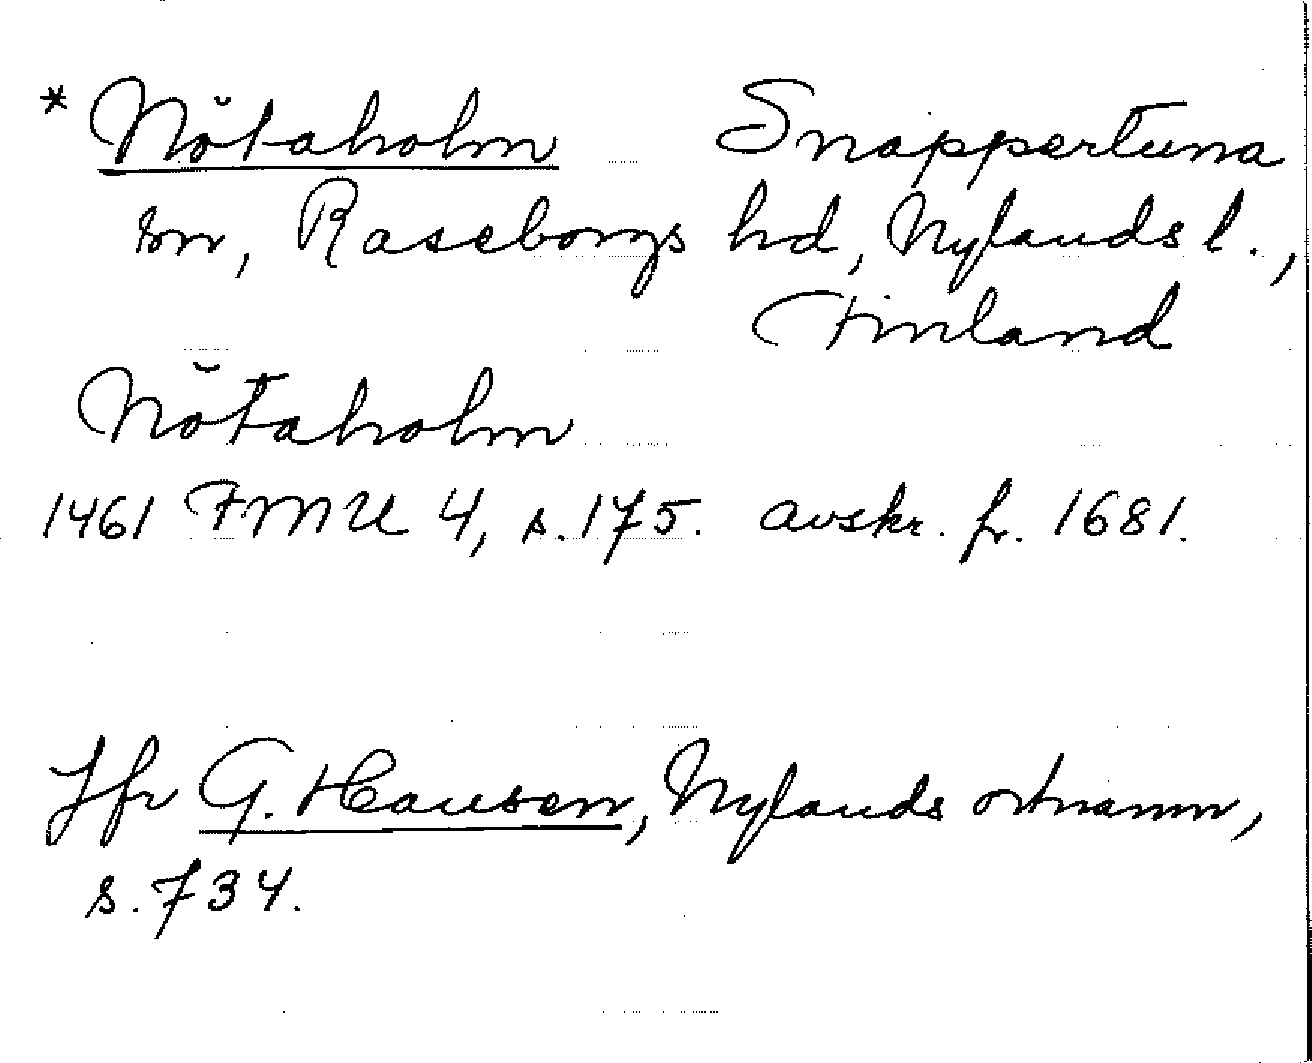 * Nötaholm Snappertuna
sn, Raseborgs hd, Nylands l.,
Finland
Nötaholm
1461 FMU 4, s. 175. avskr. fr. 1681.
Jfr G. Hausen, Nylands ortnamn,
s. 734.